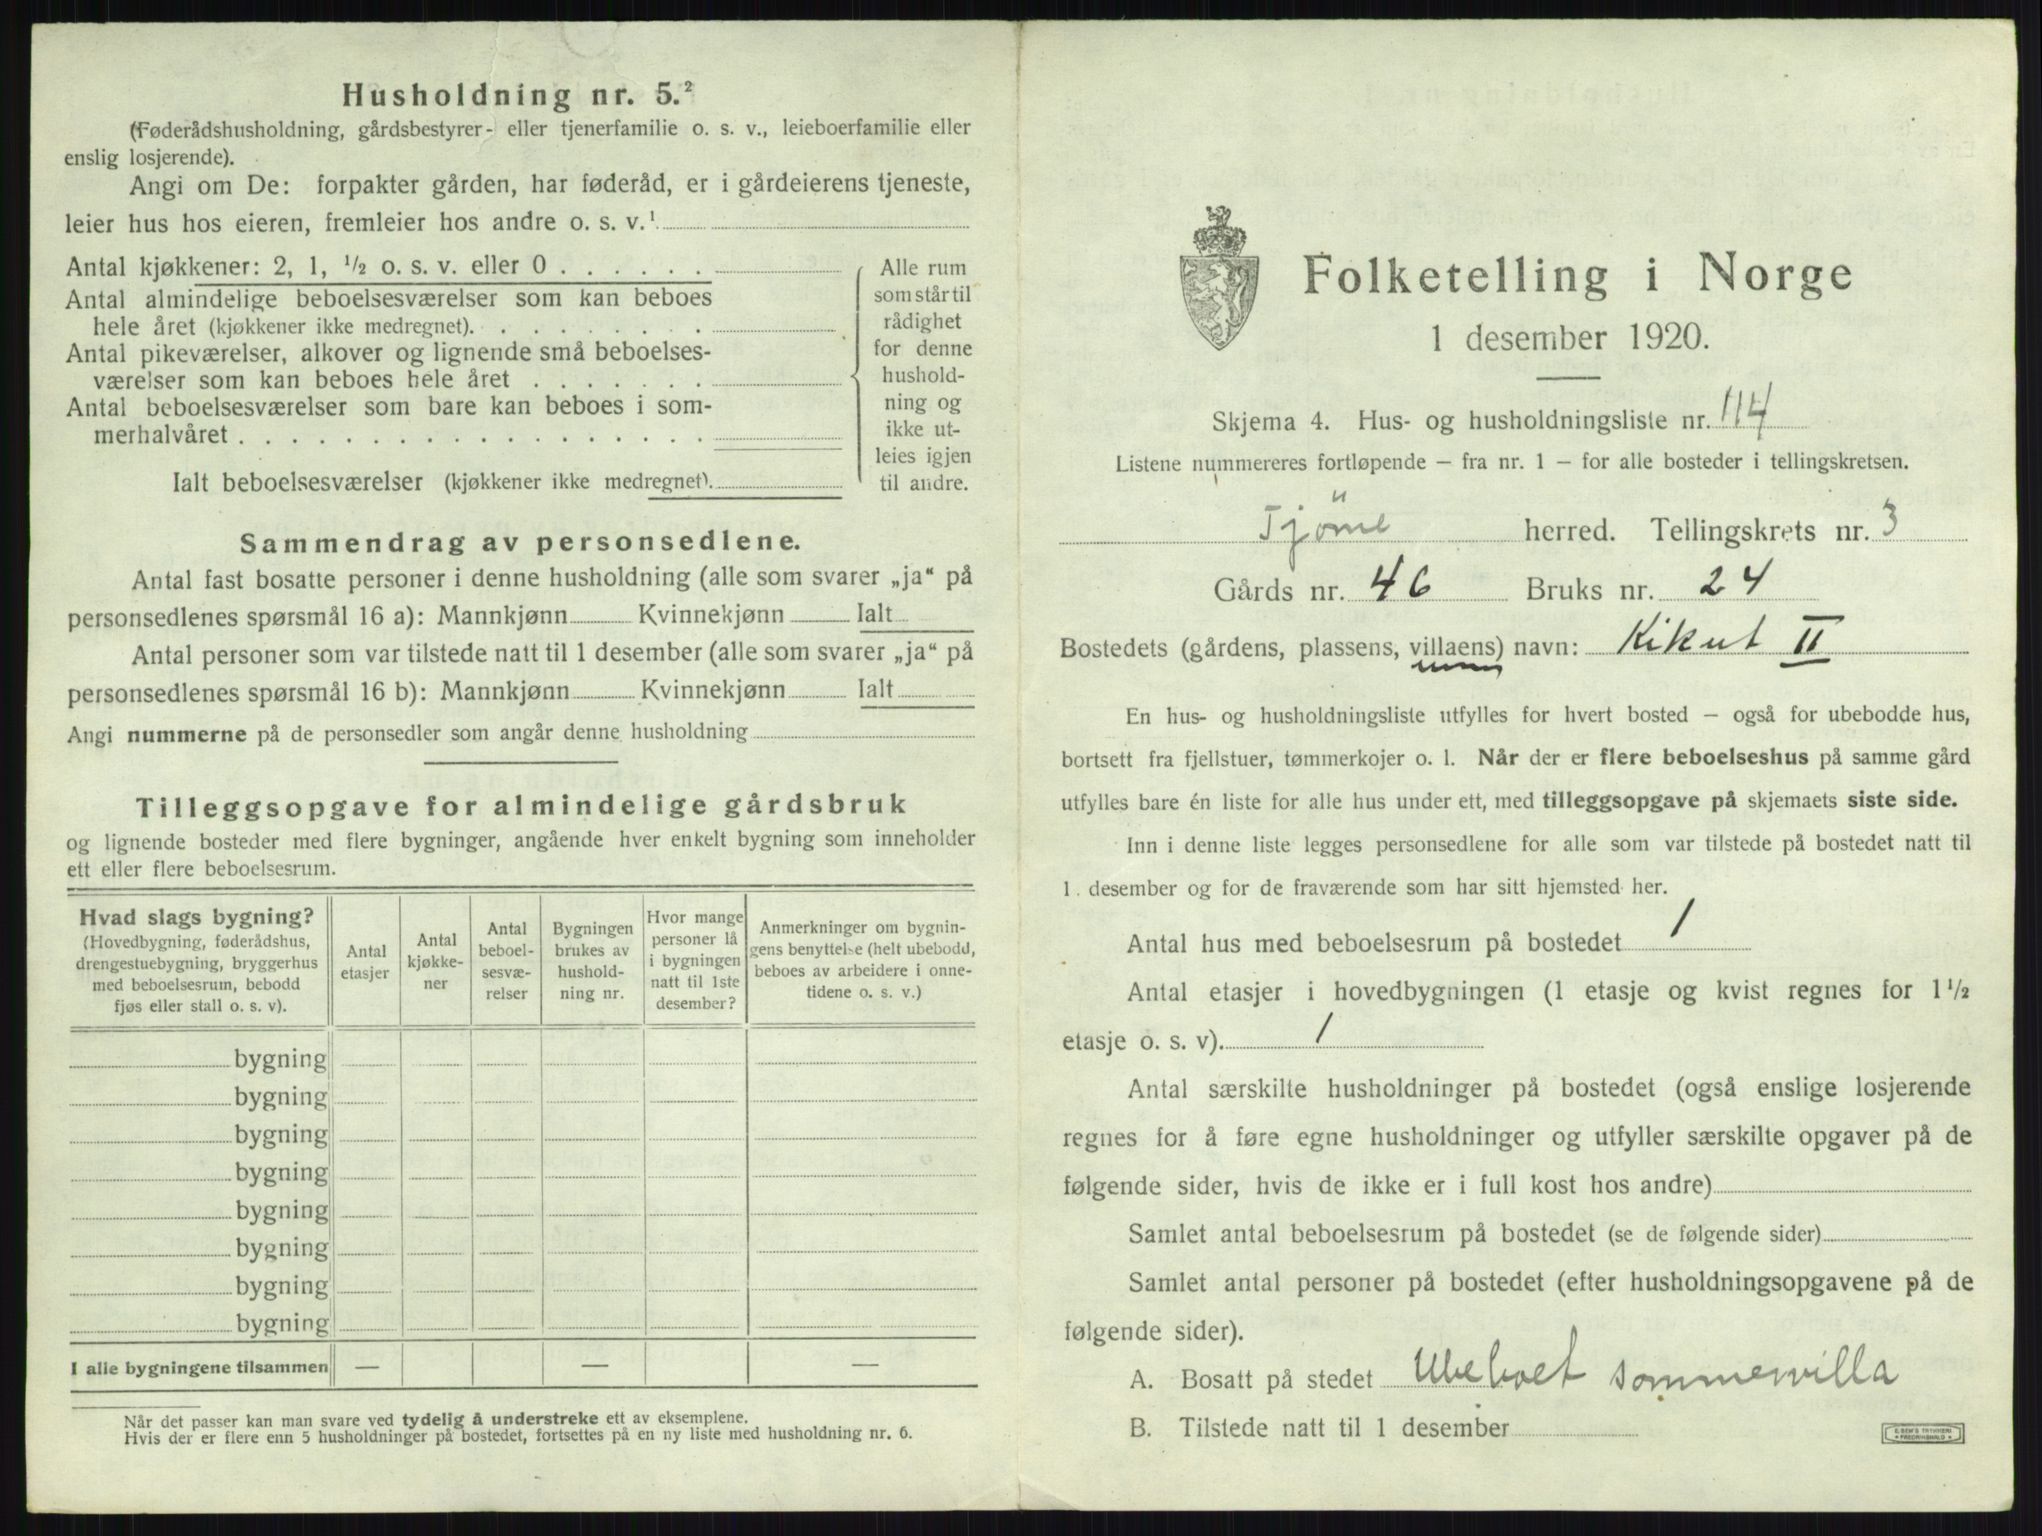 Husholdning nr. 5.²
(Føderådshusholdning, gårdsbestyrer- eller tjenerfamilie o. s. v., leieboerfamilie eller
enslig losjerende).
Angi om De: forpakter gården, har føderåd, er i gårdeierens tjeneste,
leier hus hos eieren, fremleier hos andre o. s. v.¹
Antal kjøkkener: 2, 1, ½ o. s. v. eller 0 . . . . . .
Antal almindelige beboelsesværelser som kan beboes
hele året (kjøkkener ikke medregnet). . . . . . . . .
Antal pikeværelser, alkover og lignende små beboelses-
værelser som kan beboes hele året . . . . . . .
Antal beboelsesværelser som bare kan beboes i som-
merhalvåret . . . . . . . . . . . . . . . . . .
Ialt beboelsesværelser (kjøkkener ikke medregnet).
Alle rum
som står til
rådighet
for denne
hushold-
ning og
ikke ut-
leies igjen
til andre.
Sammendrag av personsedlene.
Antal fast bosatte personer i denne husholdning (alle som svarer „ja“ på
personsedlenes spørsmål 16 a): Mannkjønn Kvinnekjønn Ialt
Antal personer som var tilstede natt til 1 desember (alle som svarer „ja“ på
personsedlenes spørsmål 16 b): Mannkjønn Kvinnekjønn Ialt
Angi nummerne på de personsedler som angår denne husholdning
Tilleggsopgave for almindelige gårdsbruk
og lignende bosteder med flere bygninger, angående hver enkelt bygning som inneholder
ett eller flere beboelsesrum.
Hvad slags bygning?
(Hovedbygning, føderådshus,
drengestuebygning, bryggerhus
med beboelsesrum, bebodd
fjøs eller stall o. s. v).
Antal
etasjer
Antal
kjøkke-
ner
Antal
beboel-
sesvæ-
relser
Bygningen
brukes av
hushold-
ning nr.
Hvor mange
personer lå
i bygningen
natt til 1ste
desember?
Anmerkninger om bygnin-
gens benyttelse (helt ubebodd,
beboes av arbeidere i onne-
tidene o. s. v.)
bygning
bygning
bygning
bygning
bygning
bygning
bygning
bygning
I alle bygningene tilsammen — — —
Når det passer kan man svare ved tydelig å understreke ett av eksemplene.
Hvis der er flere enn 5 husholdninger på bostedet, fortsettes på en ny liste med husholdning nr. 6.
Folketelling i Norge
1 desember 1920.
Skjema 4. Hus- og husholdningsliste nr. 114
Listene nummereres fortløpende – fra nr. 1 – for alle bosteder i tellingskretsen.
Tjöme herred. Tellingskrets nr. 3
Gårds nr. 46 Bruks nr. 24
Bostedets (gårdens, plassens, villaens) navn: Kikut II
En hus- og husholdningsliste utfylles for hvert bosted – også for ubebodde hus,
bortsett fra fjellstuer, tømmerkojer o. l. Når der er flere beboelseshus på samme gård
utfylles bare én liste for alle hus under ett, med tilleggsopgave på skjemaets siste side.
Inn i denne liste legges personsedlene for alle som var tilstede på bostedet natt til
1. desember og for de fraværende som har sitt hjemsted her.
Antal hus med beboelsesrum på bostedet 1
Antal etasjer i hovedbygningen (1 etasje og kvist regnes for 1½
etasje o. s. v). 1
Antal særskilte husholdninger på bostedet (også enslige losjerende
regnes for å føre egne husholdninger og utfyller særskilte opgaver på de
følgende sider, hvis de ikke er i full kost hos andre)
Samlet antal beboelsesrum på bostedet (se de følgende sider)
Samlet antal personer på bostedet (efter husholdningsopgavene på de
følgende sider).
A. Bosatt på stedet Ubeboet sommervilla
B. Tilstede natt til 1 desember
E. SEM'S TRYKKERI
FREDRIKSHALD